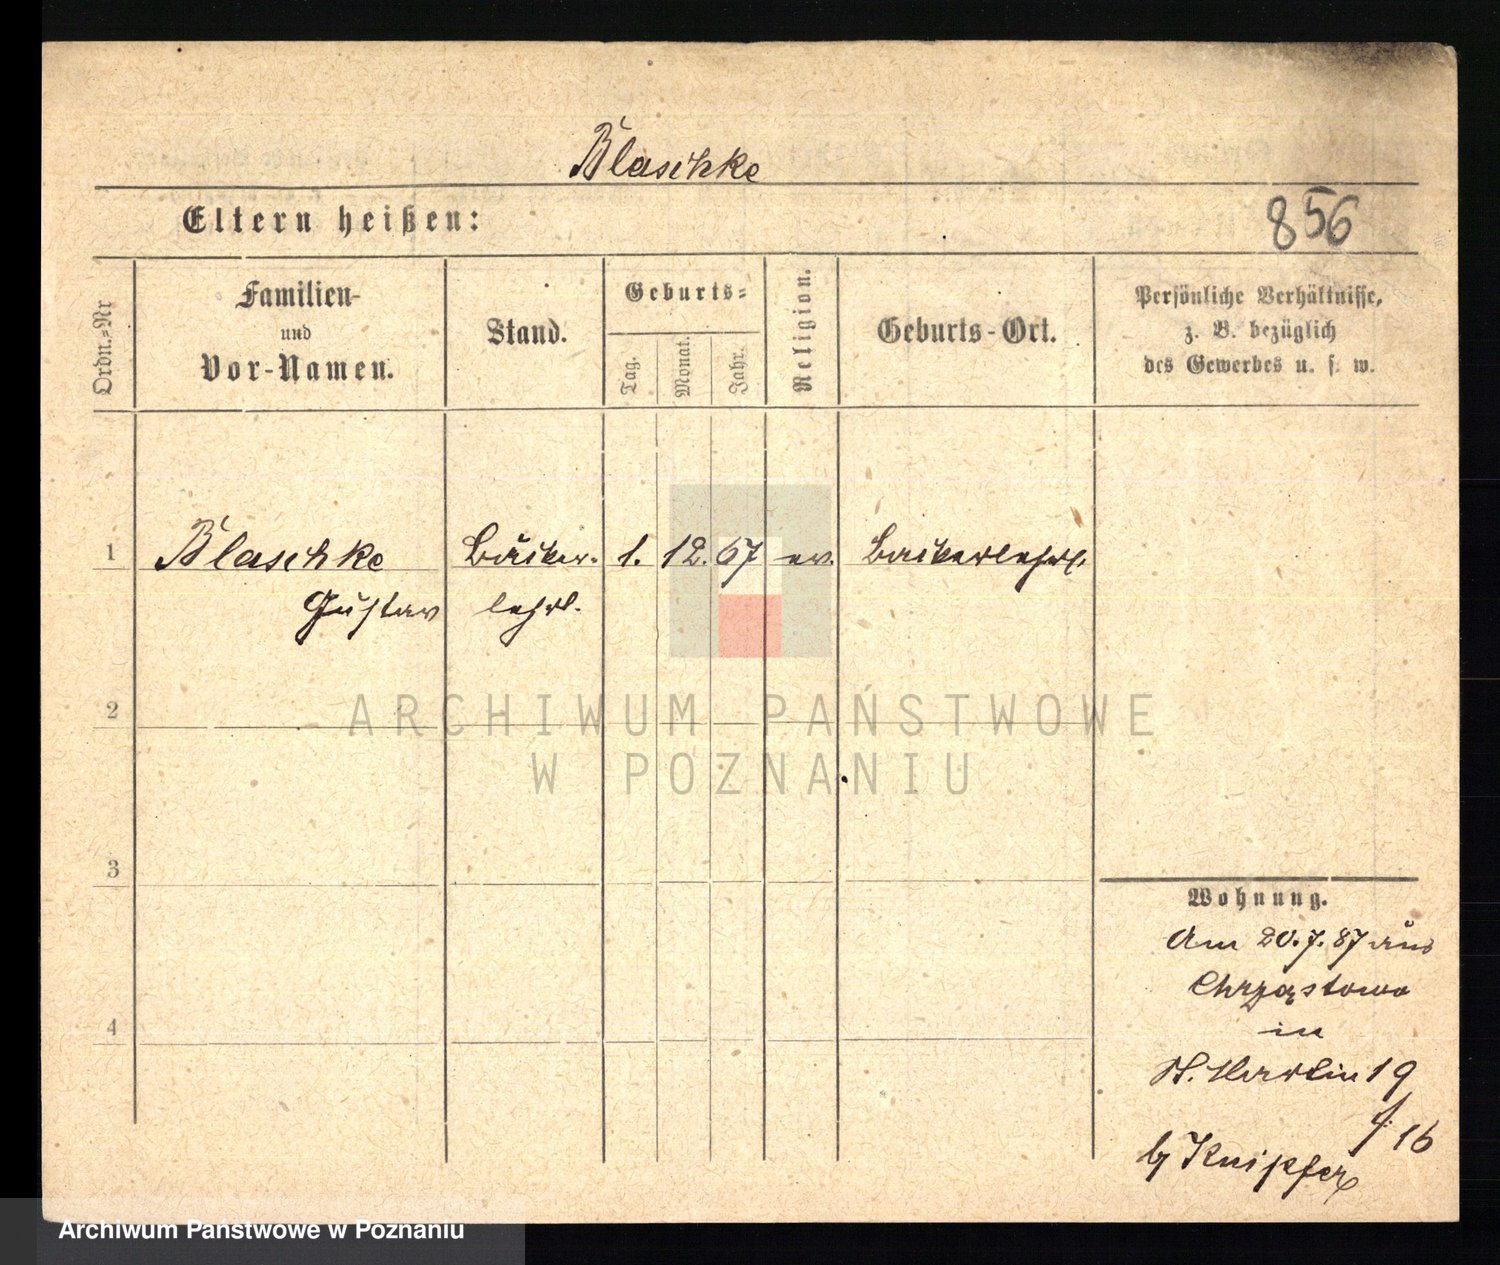 Blaschke
Eltern heißen:
856
Ordn.-Nr
Familien-
und
Vor-Namen.
Stand.
Geburts-
Tag.
Monat.
Jahr.
Religion.
Geburts-Ort.
Persönliche Verhältnisse,
z. B. bezüglich
des Gewerbes u. s. w.
1
Blaschke
Gustav
Bäcker-
lehrl.
1. 12. 67
ev.
2
ARCHIWUM PAŃSTWOWE
W POZNANIU
3
4
Wohnung.
Am 20.7.87 aus
Chrząstowo
in
St. Martin 19
16
b/ Knipfer
Archiwum Państwowe w Poznaniu